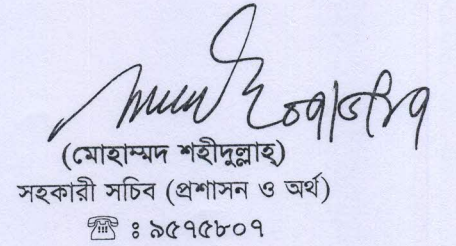 (মোহাম্মদ শহীদুল্লাহ্)
সহকারী সচিব (প্রশাসন ও অর্থ)
☎ : ৯৫৭৫৮০৭